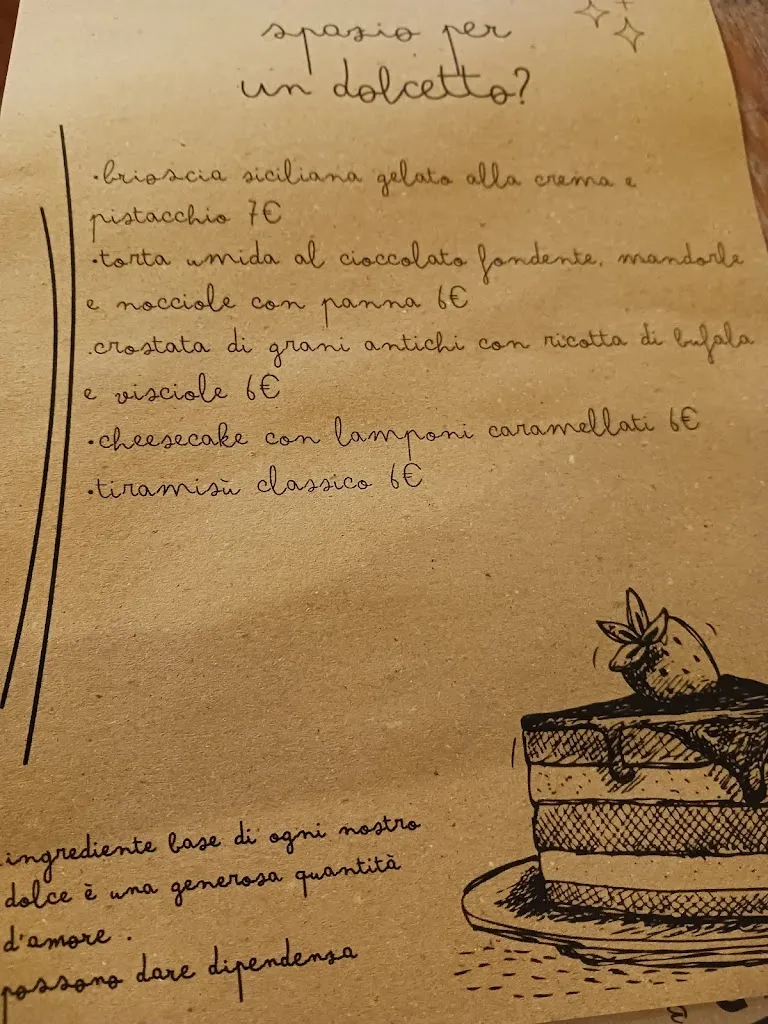 spazio per
un dolcetto?
•brioscia siciliana gelato alla crema e
pistacchio 7€
•torta umida al cioccolato fondente, mandorle
e nocciole con panna 6€
.crostata di grani antichi con ricotta di bufala
e visciole 6€
•cheesecake con lamponi caramellati 6€
•tiramisù classico 6€
ingrediente base di ogni nostro
dolce è una generosa quantità
d'amore .
possono dare dipendenza